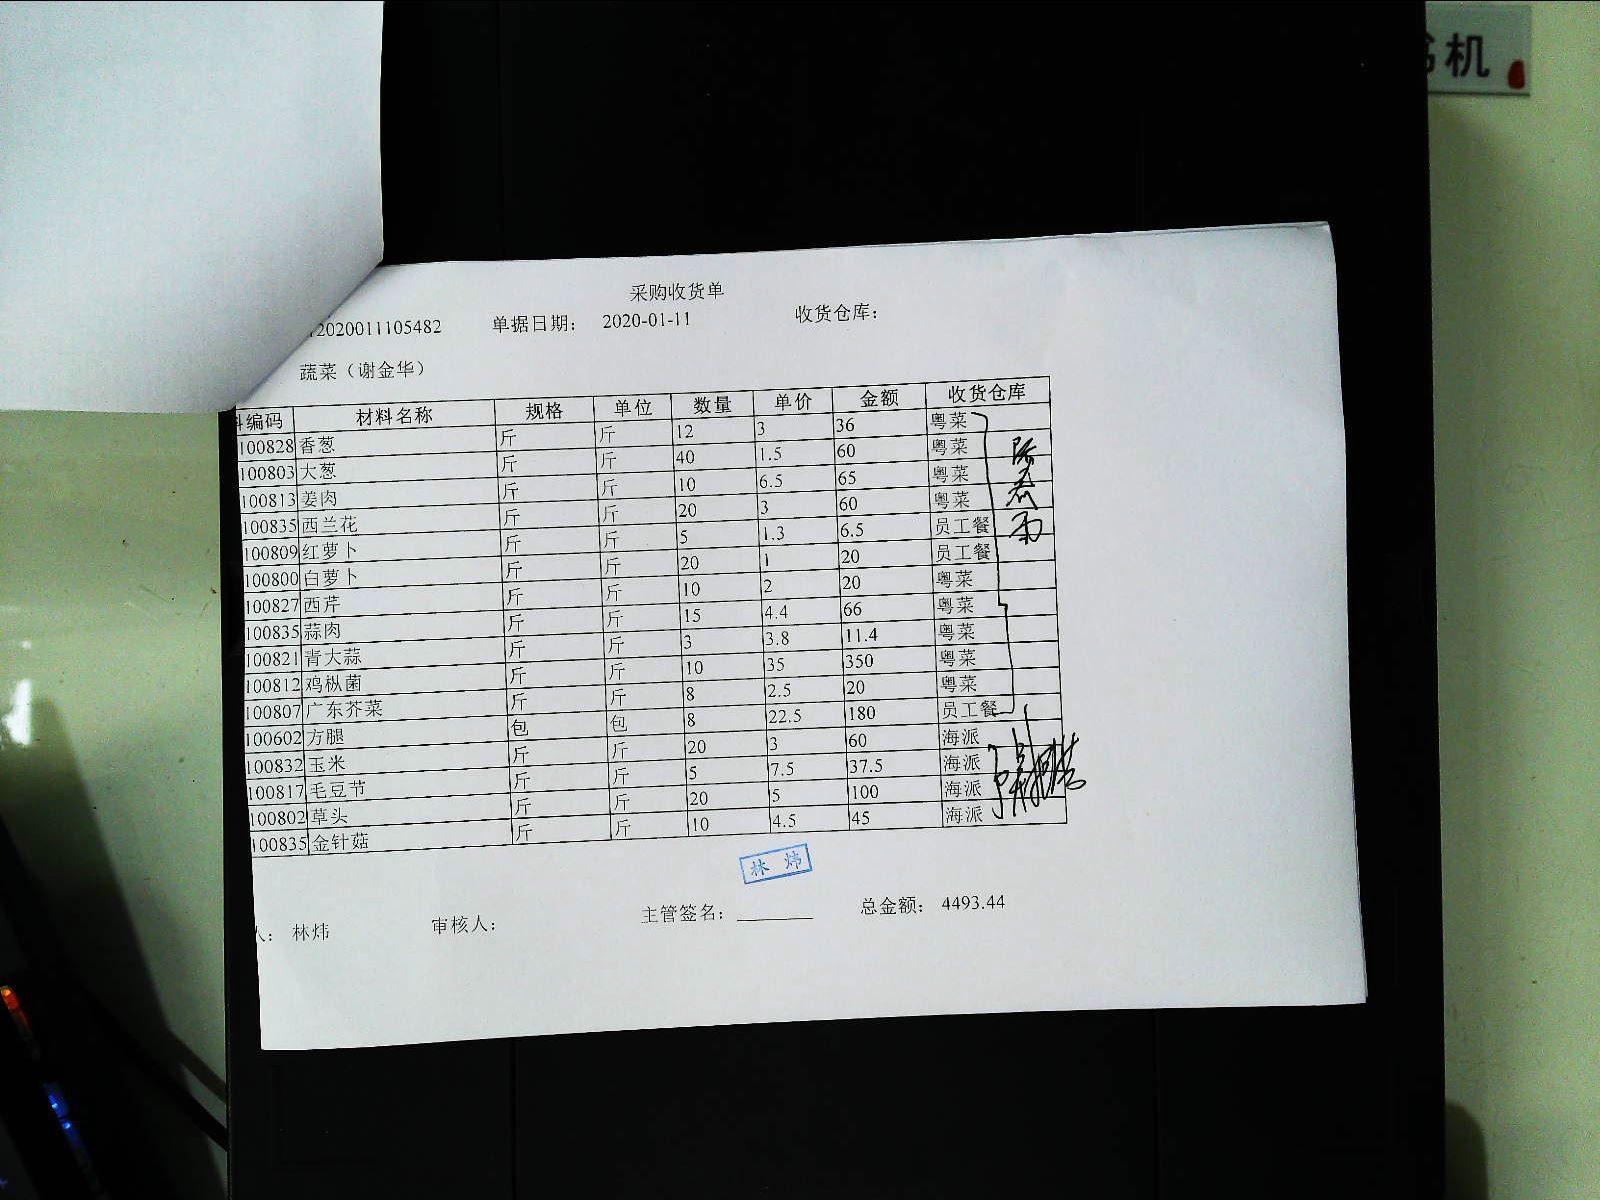 机
采购收货单
12020011105482 单据日期： 2020-01-11 收货仓库：
蔬菜（谢金华）
编码 材料名称 规格 单位 数量 单价 金额 收货仓库
100828 香葱 斤 斤 12 3 36 粤菜
100803 大葱 斤 斤 40 1.5 60 粤菜
100813 姜肉 斤 斤 10 6.5 65 粤菜
100835 西兰花 斤 斤 20 3 60 粤菜
100809 红萝卜 斤 斤 5 1.3 6.5 员工餐
100800 白萝卜 斤 斤 20 1 20 员工餐
100827 西芹 斤 斤 10 2 20 粤菜
100835 蒜肉 斤 斤 15 4.4 66 粤菜
100821 青大蒜 斤 斤 3 3.8 11.4 粤菜
100812 鸡枞菌 斤 斤 10 35 350 粤菜
100807 广东芥菜 斤 斤 8 2.5 20 粤菜
100602 方腿 包 包 8 22.5 180 员工餐
100832 玉米 斤 斤 20 3 60 海派
100817 毛豆节 斤 斤 5 7.5 37.5 海派
100802 草头 斤 斤 20 5 100 海派
100835 金针菇 斤 斤 10 4.5 45 海派
林炜
人： 林炜 审核人： 主管签名： 总金额： 4493.44